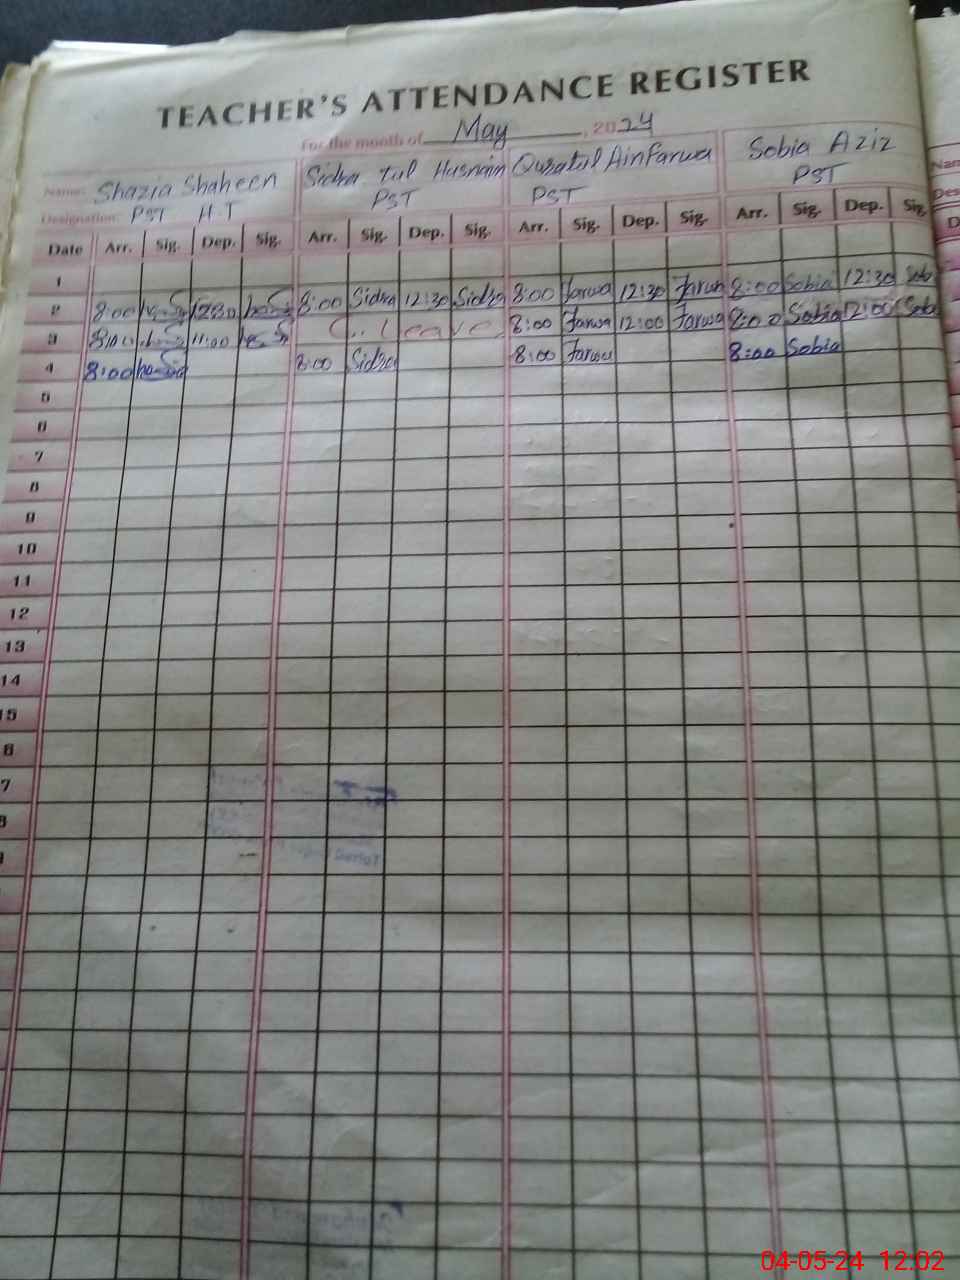 TEACHER'S ATTENDANCE REGISTER
For the month of May, 2024
Name: Shazia Shaheen Sidra tul Husnain Quratul Ain Farwa Sobia Aziz
Designation: PST H.T PST PST PST
Date Arr. Sig. Dep. Sig. Arr. Sig. Dep. Sig. Arr. Sig. Dep. Sig. Arr. Sig. Dep. Sig.
1
2 8:00 12:30 8:00 Sidra 12:30 Sidra 8:00 Farwa 12:30 Farwa 8:00 Sobia 12:30 Sobia
3 11:00 leave 8:00 Farwa 12:00 Farwa 8:00 Sobia 12:00 Sobia
4 8:00 8:00 Sidra 8:00 Farwa 8:00 Sobia
5
6
7
8
9
10
11
12
13
14
15
6
7
Nam
Des
D
04-05-24 12:02